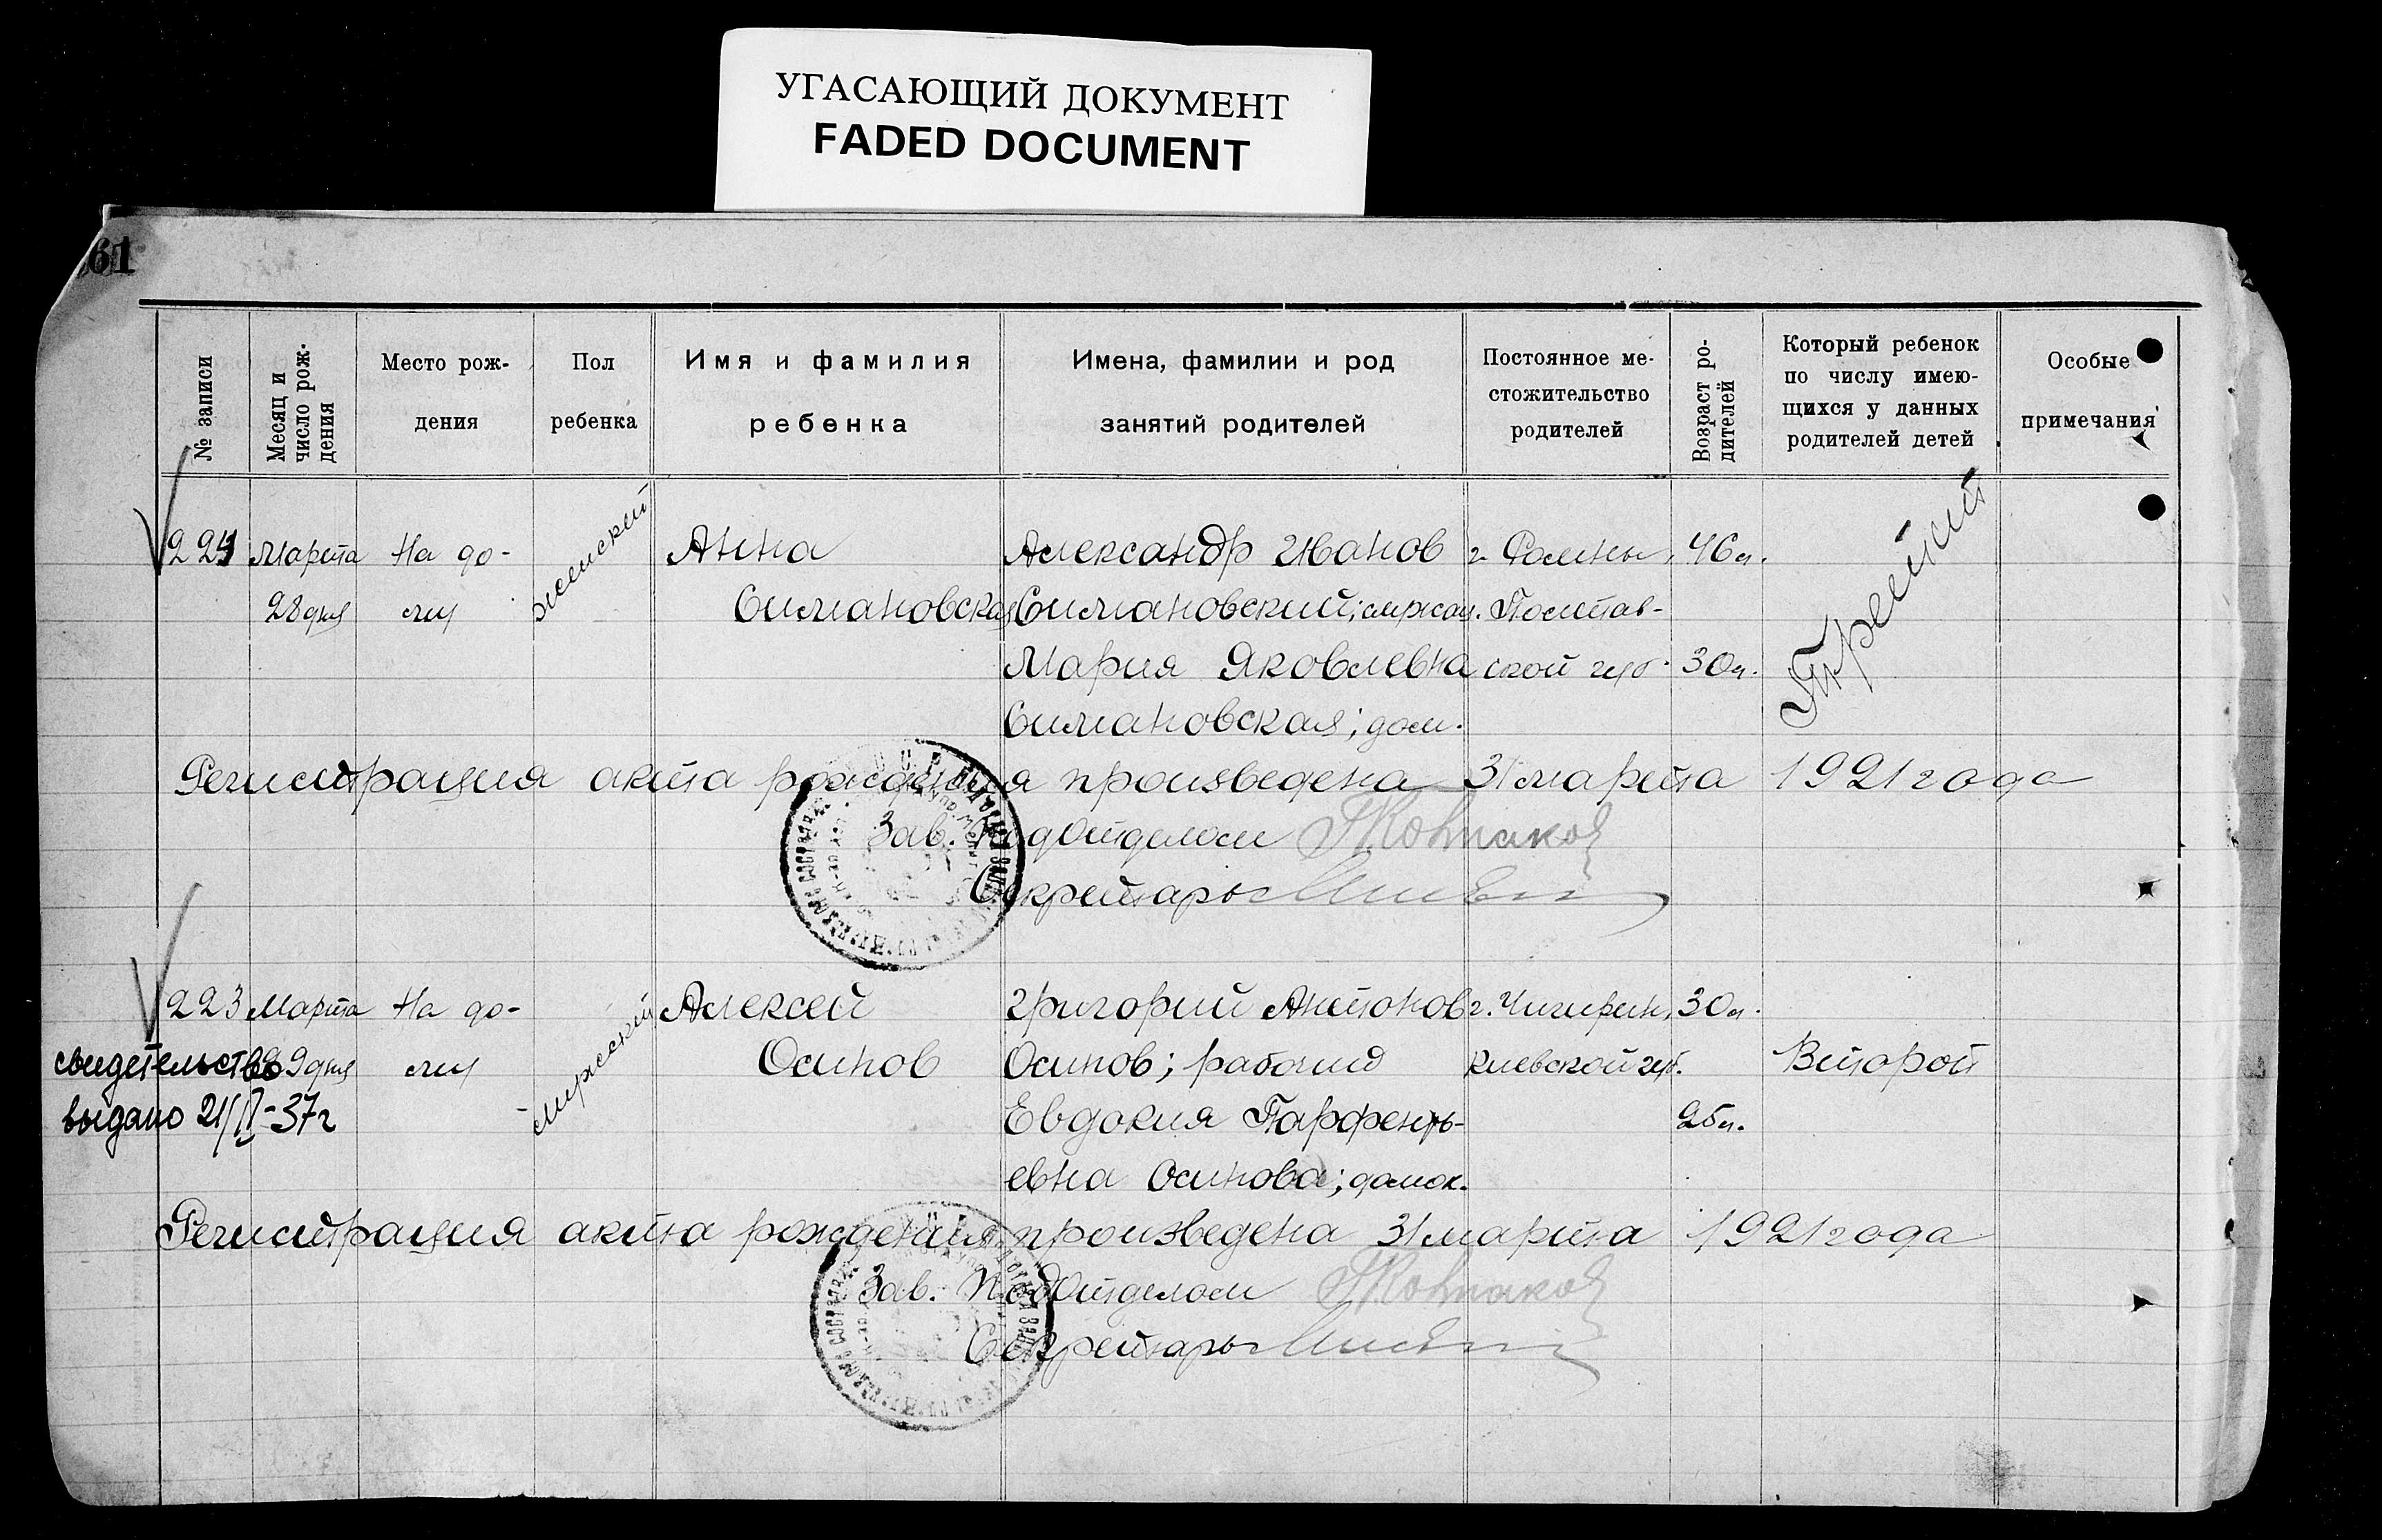 УГАСАЮЩИЙ ДОКУМЕНТ
FADED DOCUMENT
61
№ записи
Месяц и
число рож-
дения
Место рож-
дения
Пол
ребенка
Имя и фамилия
ребенка
Имена, фамилии и род
занятий родителей
Постоянное ме-
стожительство
родителей
Возраст ро-
дителей
Который ребенок
по числу имею-
щихся у данных
родителей детей
Особые
примечания
Марта На до- женский Анна Александр Иванов г. Ромны, 46 л. Третий
28 дня му Симановская Симановский; Полтав-
Мария Яковлевна ской губ. 30 л.
Симановская; дом.
Регистрация акта рождения произведена 31 марта 1921 года
Зав. Подотделом
Секретарь
223 Марта На до- мужской Алексей Григорий Антонов г. Чигирин, 30 л.
свидетельство 29 дня му Осипов Осипов; рабочий Киевской губ. Второй
выдано 21/II-37г Евдокия Парфенть- 25 л.
евна Осипова; домох.
Регистрация акта рождения произведена 31 марта 1921 года
Зав. Подотделом
Секретарь